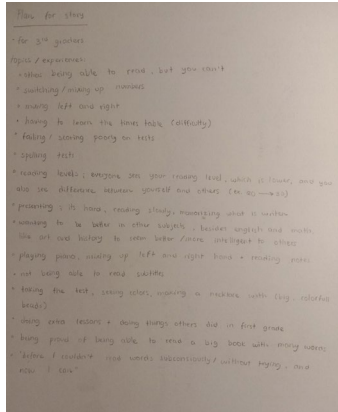 Plan for story
- for 3rd graders
topics / experiences:
• other being able to read, but you can't
* switching / mixing up numbers
* mixing left and right
* having to learn the times table (difficulty)
* failing / scoring poorly on tests
* spelling tests
* reading levels; everyone sees your reading level, which is lower, and you
also see difference between yourself and others
* presenting: its hard, reading slowly, memorizing what is written
* wanting to be better in other subjects, besides english and maths,
like art and history to seem better / more intelligent to others
* playing piano, mixing up left and right hand + reading notes
* not being able to read
* taking the test, seeing colors, making a necklace with big, colorful
beads
* doing extra lessons + doing things others did in first grade
* being proud of being able to read a big book with many words
* "before I wouldn't read words subconsciously / without trying, and
now I can"